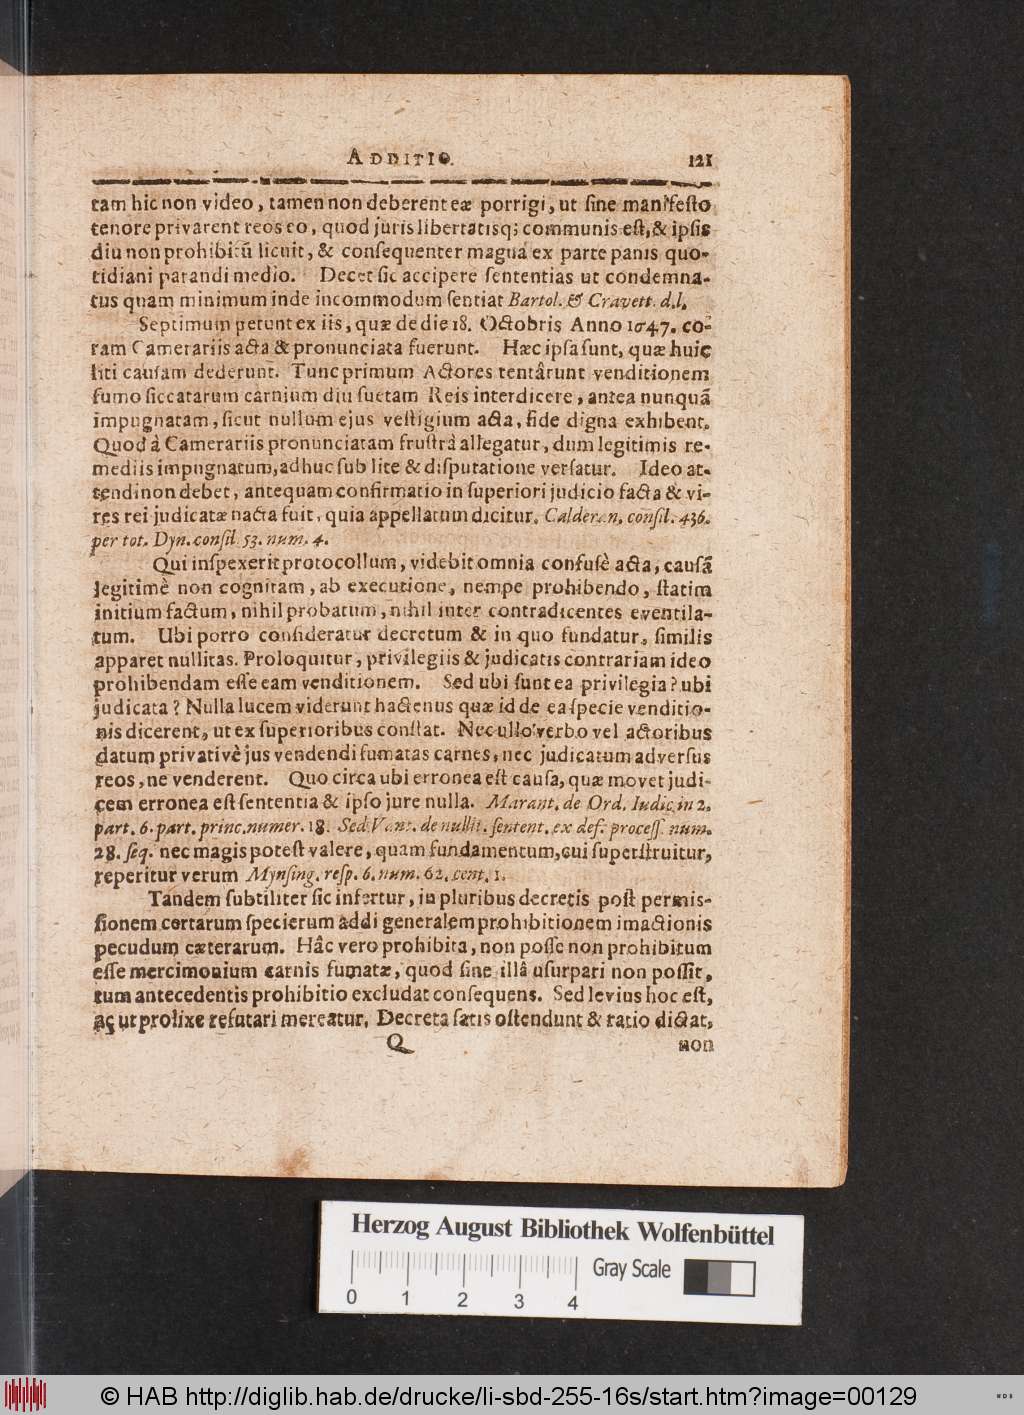 ADDITIO. 121
tam hic non video, tamen non deberent eæ porrigi, ut sine manifesto
tenore privarent reos eo, quod juris libertatisq; communis est, & ipsis
diu non prohibitũ licuit, & consequenter magnâ ex parte panis quo-
tidiani parandi medio. Decet sic accipere sententias ut condemna-
tus quam minimum inde incommodum sentiat Bartol. & Cravett. d. l.
Septimum petunt ex iis, quæ de die 18. Octobris Anno 1647. co-
ram Camerariis acta & pronunciata fuerunt. Hæc ipsa sunt, quæ huic
liti causam dederunt. Tunc primum Actores tentârunt venditionem
fumo siccatarum carnium diu suetam Reis interdicere, antea nunquã
impugnatam, sicut nullum ejus vestigium acta, fide digna exhibent.
Quod à Camerariis pronunciatam frustrà allegatur, dum legitimis re-
mediis impugnatum, adhuc sub lite & disputatione versatur. Ideo at-
tendi non debet, antequam confirmatio in superiori judicio facta & vi-
res rei judicatæ nacta fuit, quia appellatum dicitur. Calderon. consil. 436.
per tot. Dyn. consil. 53. num. 4.
Qui inspexerit protocollum, videbit omnia confusè acta, causã
legitimè non cognitam, ab executione, nempe prohibendo, statim
initium factum, nihil probatum, nihil inter contradicentes eventila-
tum. Ubi porro consideratur decretum & in quo fundatur, similis
apparet nullitas. Proloquitur, privilegiis & judicatis contrariam ideo
prohibendam esse eam venditionem. Sed ubi sunt ea privilegia? ubi
judicata? Nulla lucem viderunt hactenus quæ id de ea specie venditio-
nis dicerent, ut ex superioribus constat. Nec ullo verbo vel actoribus
datum privativè jus vendendi fumatas carnes, nec judicatum adversus
reos, ne venderent. Quo circa ubi erronea est causa, quæ movet judi-
cem erronea est sententia & ipso jure nulla. Marant. de Ord. Iudic. in 2.
part. 6. part. princ. numer. 18. Sed. Vant. de nullit. sentent. ex def. process. num.
28. seq. nec magis potest valere, quam fundamentum, cui superstruitur,
reperitur verum Mynsing. resp. 6. num. 62. cent. 1.
Tandem subtiliter sic infertur, in pluribus decretis post permis-
sionem certarum specierum addi generalem prohibitionem imactionis
pecudum cæterarum. Hâc vero prohibita, non posse non prohibitum
esse mercimonium carnis fumatæ, quod sine illâ usurpari non possit,
tum antecedentis prohibitio excludat consequens. Sed levius hoc est,
ac ut prolixe refutari mereatur. Decreta satis ostendunt & ratio dictat,
Q non
Herzog August Bibliothek Wolfenbüttel
Gray Scale
0 1 2 3 4
© HAB http://diglib.hab.de/drucke/li-sbd-255-16s/start.htm?image=00129
WDB